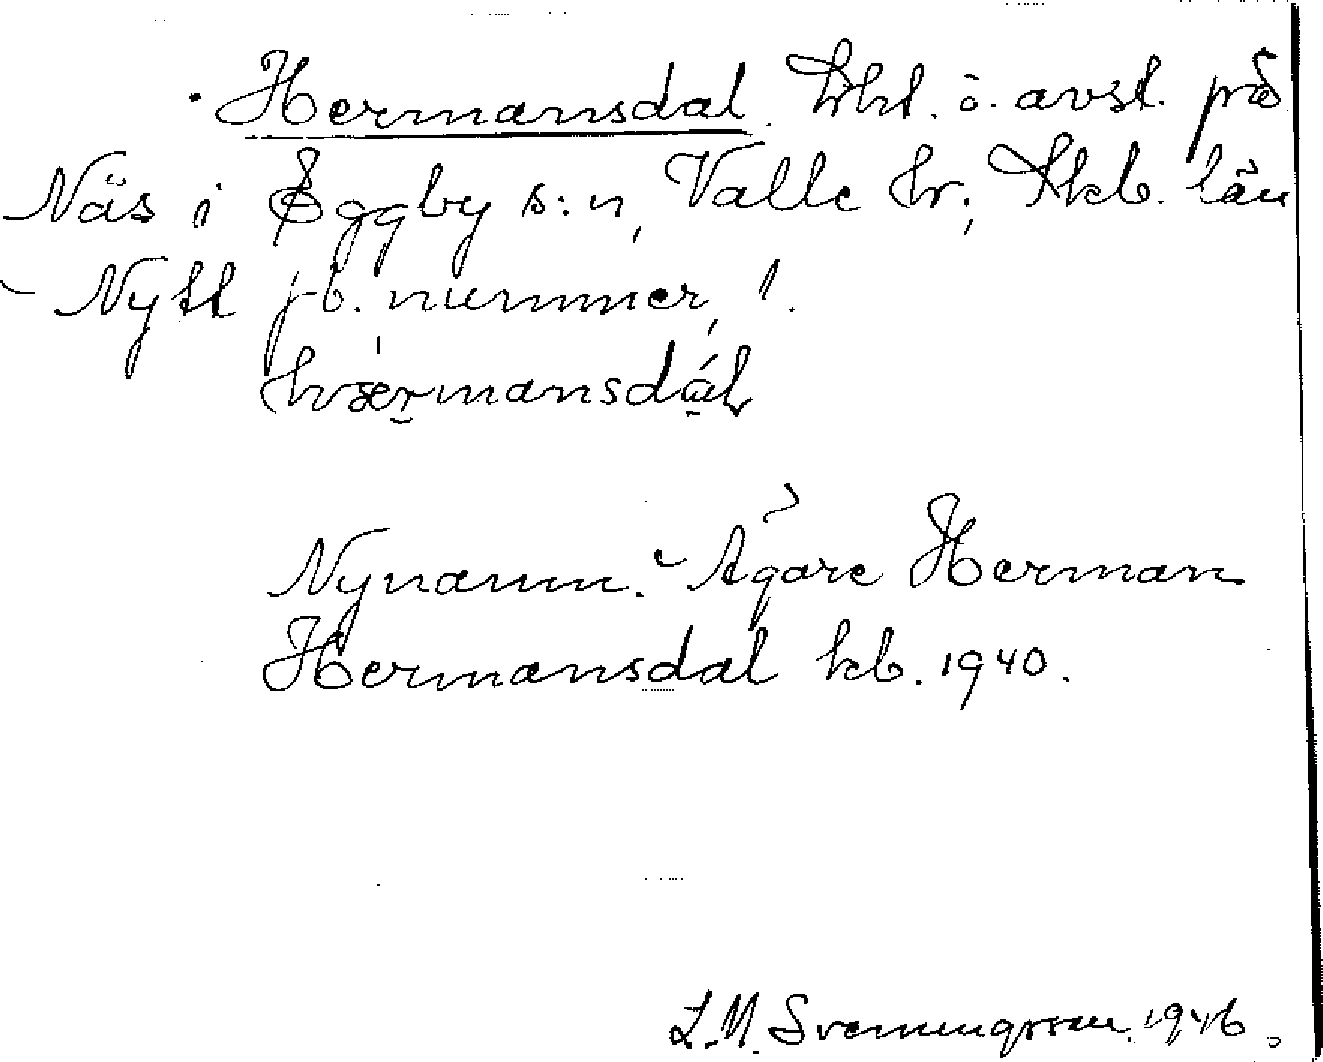 Hermansdal. Lht. o. avst. på
Näs i Eggby s:n, Valle hr; Skb. län
- Nytt jb. nummer, 1.
hærmansdál
Nynamn. - Ägare Herman
Hermansdal kb. 1940.
L.M. Svenungsson. 1946.